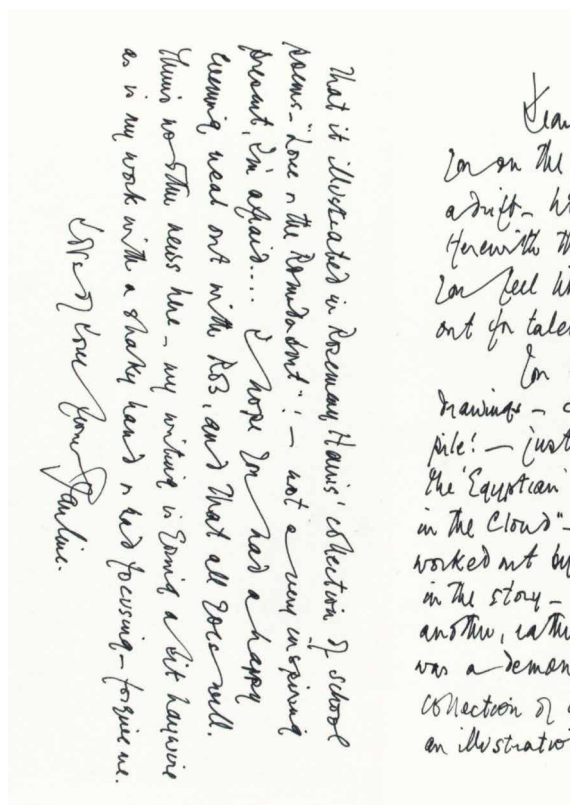 Dear
you on the
adrift –
Herewith th
you feel li
out for tale
You
drawings –
pile! – just
the 'Egyptian
in the Cloud" –
worked out by
in the story –
another, rathe
was a demon
collection of
an illustratio
that it illustrated in Rosemary Harris' collection of school
poems – "Love & the"! – not a very inspiring
present, I'm afraid.... I hope you had a happy
evening meal out with Ros, and that all goes well.
There's no other news here – my writing is going a bit haywire
as is my work with a shaky hand & bad focusing – forgive me.
Lots of love from Pauline.